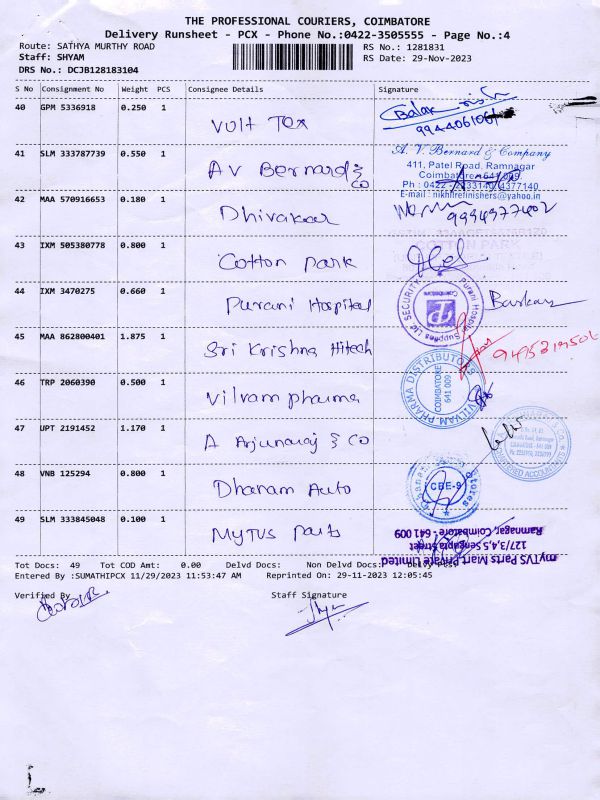 THE PROFESSIONAL COURIERS, COIMBATORE
Delivery Runsheet - PCX - Phone No.:0422-3505555 - Page No.:4
Route: SATHYA MURTHY ROAD
RS No.: 1281831
Staff: SHYAM
RS Date: 29-Nov-2023
DRS No.: DCJB128183104
S No Consignment No Weight PCS Consignee Details Signature
40 GPM 5336918 0.250 1
Volt Tex
41 SLM 333787739 0.550 1
AV Bernard & Co
A. V. Bernard & Company
411, Patel Road, Ramnagar
Coimbatore - 641 009.
E-mail : nikhilrefinishers@yahoo.in
42 MAA 570916653 0.180 1
Dhivakar
9994377402
43 IXM 505380778 0.800 1
Cotton park
COTTON PARK
44 IXM 3470275 0.660 1
Purani Hospital
Purani Hospital Supplies Ltd SECURITY
45 MAA 862800401 1.875 1
Sri Krishna Hitech
46 TRP 2060390 0.500 1
Vilvam pharma
VILVAM PHARMA DISTRIBUTORS
COIMBATORE
641 009
47 UPT 2191452 1.170 1
A Arjunaraj & co
48 VNB 125294 0.800 1
Dharam Auto
CBE-9
49 SLM 333845048 0.100 1
MyTVS parts
myTVS Parts Mart Private Limited
127/3,4,5 Sengupta Street
Ramnagar, Coimbatore - 641 009
Tot Docs: 49 Tot COD Amt: 0.00 Delvd Docs: Non Delvd Docs:
Entered By :SUMATHIPCX 11/29/2023 11:53:47 AM Reprinted On: 29-11-2023 12:05:45
Verified By
Staff Signature